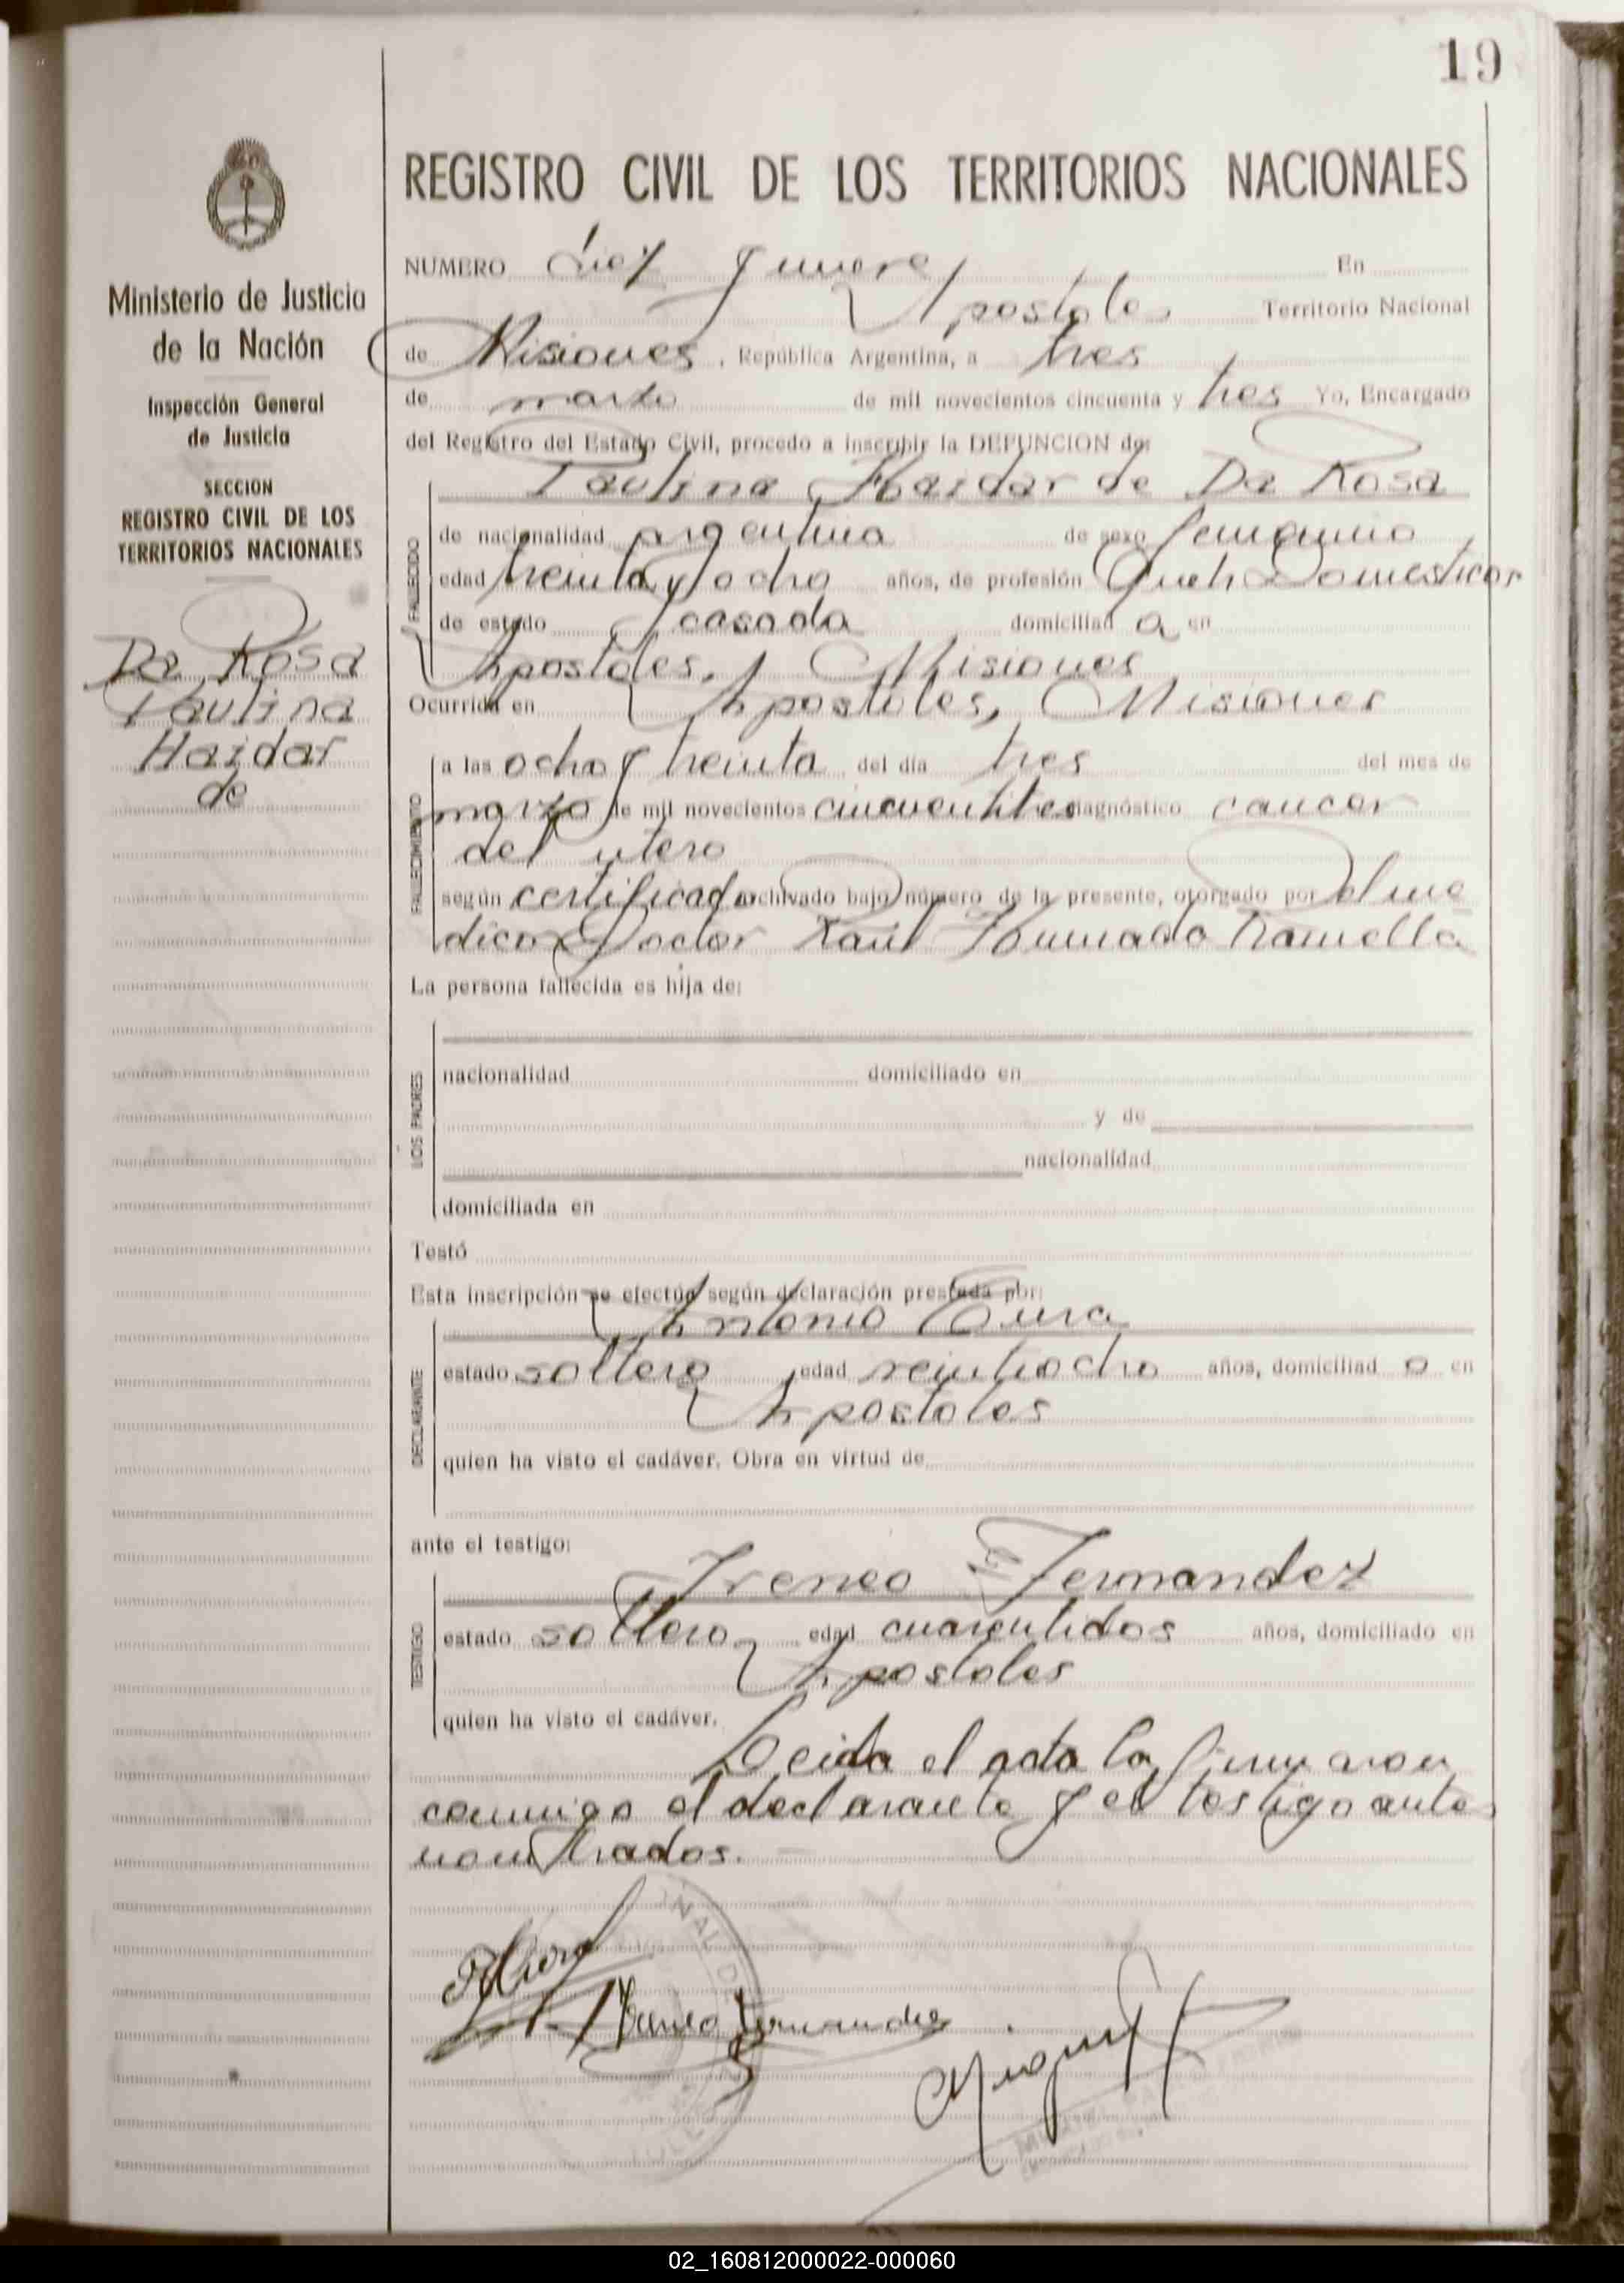 19
Ministerio de Justicia
de la Nación
Inspección General
de Justicia
SECCION
REGISTRO CIVIL DE LOS
TERRITORIOS NACIONALES
Da Rosa
Paulina
Haidar
de
REGISTRO CIVIL DE LOS TERRITORIOS NACIONALES
NUMERO Diez y nueve En
Apostoles Territorio Nacional
de Misiones, República Argentina, a tres
de marzo de mil novecientos cincuenta y tres Yo, Encargado
del Registro del Estado Civil, procedo a inscribir la DEFUNCION de:
Paulina Haidar de Da Rosa
FALLECIDO
de nacionalidad argentina de sexo femenino
edad treinta y ocho años, de profesión Queh. Domesticos
de estado casada domiciliad a en
Apostoles, Misiones
Ocurrida en Apostoles, Misiones
FALLECIMIENTO
a las ocho y treinta del día tres del mes de
marzo de mil novecientos cincuentitres diagnóstico cancer
del utero
según certificado archivado bajo número de la presente, otorgado por el me
dico Doctor Raúl Ramella
La persona fallecida es hija de:
LOS PADRES
nacionalidad domiciliado en
y de
nacionalidad
domiciliada en
Testó
Esta inscripción se efectúa según declaración prestada por:
Antonio
DECLARANTE
estado soltero edad veintiocho años, domiciliad o en
Apostoles
quien ha visto el cadáver. Obra en virtud de
ante el testigo:
Ireneo Fernandez
TESTIGO
estado soltero edad cuarentidos años, domiciliado en
Apostoles
quien ha visto el cadáver.
Leida el acta la firmaron
conmigo el declarante y el testigo antes
nombrados.
Ireneo Fernandez
02_160812000022-000060